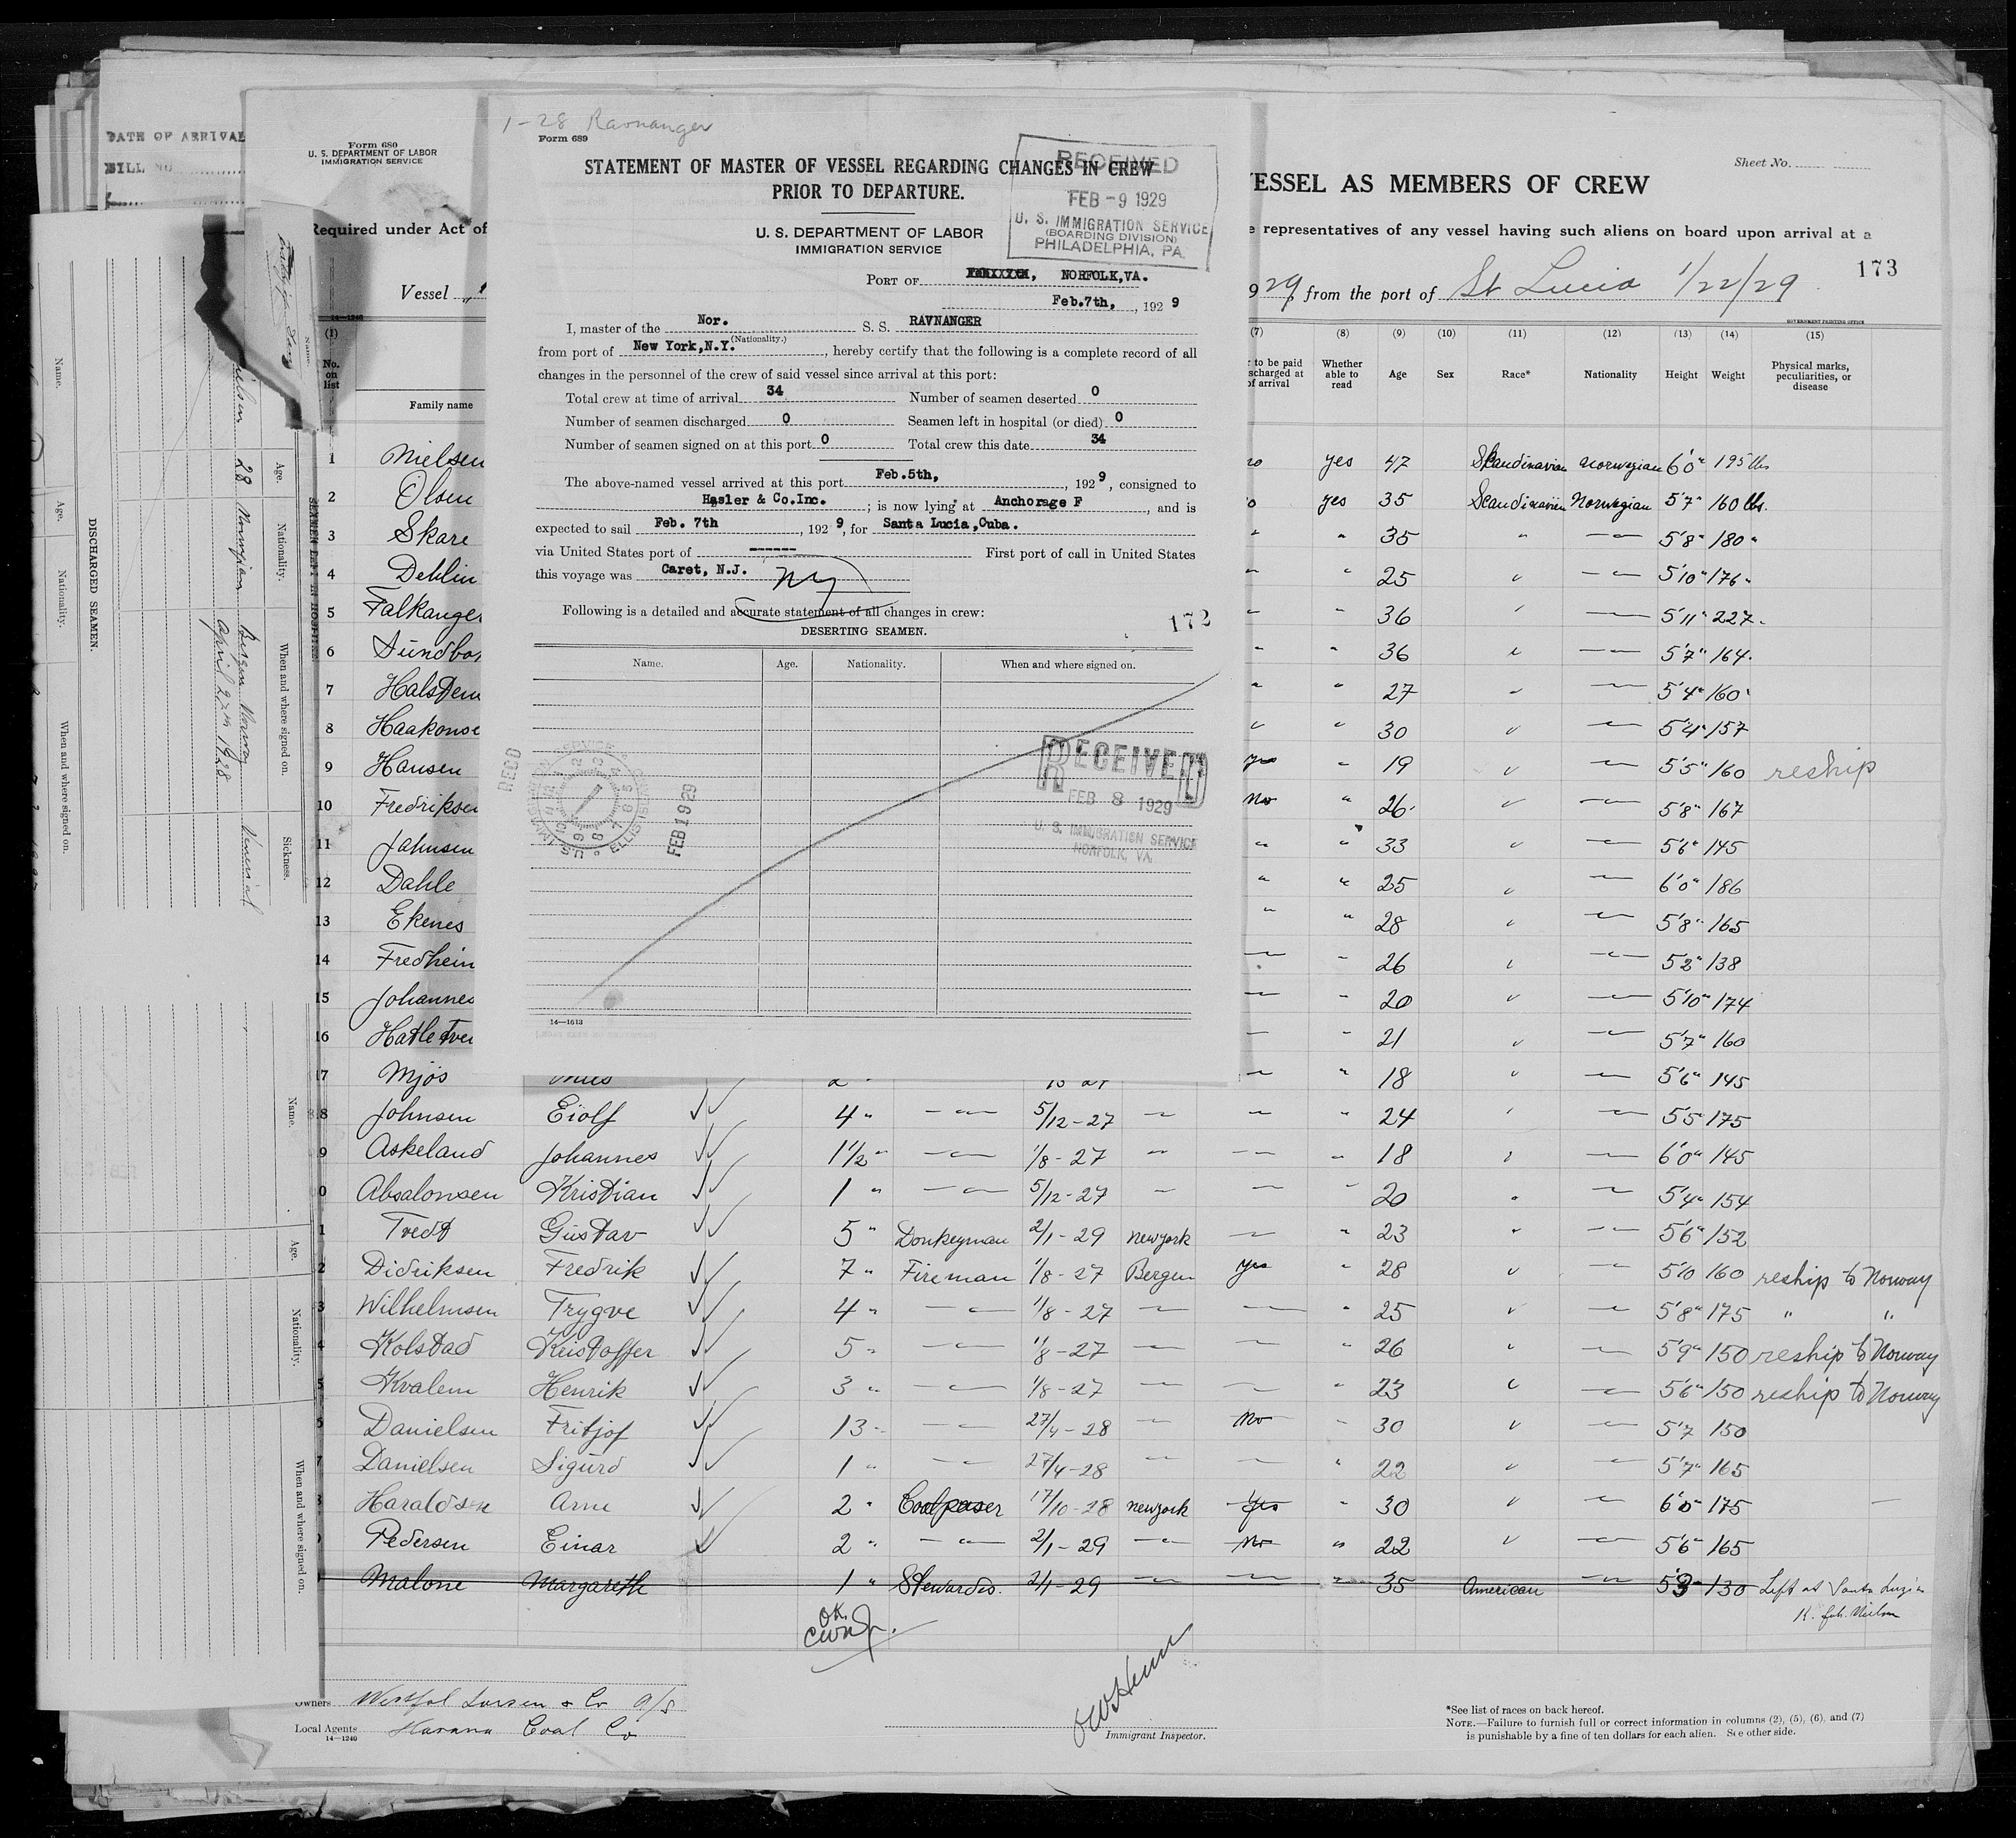 DATE OF ARRIVAL
BILL NO
Form 680
U. S. DEPARTMENT OF LABOR
IMMIGRATION SERVICE
Required under Act of
Vessel
1-28 Ravnanger
Form 689
STATEMENT OF MASTER OF VESSEL REGARDING CHANGES IN CREW
PRIOR TO DEPARTURE.
U. S. DEPARTMENT OF LABOR
IMMIGRATION SERVICE
RECEIVED
FEB -9 1929
U. S. IMMIGRATION SERVICE
(BOARDING DIVISION)
PHILADELPHIA, PA.
PORT OF NORFOLK,VA.
Feb.7th, , 1929
I, master of the Nor. S. S. RAVNANGER
(Nationality.)
from port of New York,N.Y. , hereby certify that the following is a complete record of all
changes in the personnel of the crew of said vessel since arrival at this port:
Total crew at time of arrival 34 Number of seamen deserted 0
Number of seamen discharged 0 Seamen left in hospital (or died) 0
Number of seamen signed on at this port 0 Total crew this date 34
The above-named vessel arrived at this port Feb.5th, , 1929, consigned to
Hasler & Co.Inc. ; is now lying at Anchorage F , and is
expected to sail Feb. 7th , 1929, for Santa Lucia,Cuba.
via United States port of ------ First port of call in United States
this voyage was Caret, N.J. NY
Following is a detailed and accurate statement of all changes in crew:
172
DESERTING SEAMEN.
Name. Age. Nationality. When and where signed on.
RECD
U.S. IMMIGRATION SERVICE ELLIS ISLAND
FEB 1929
RECEIVED
FEB 8 1929
U. S. IMMIGRATION SERVICE
NORFOLK, VA.
14—1613
Sheet No.
VESSEL AS MEMBERS OF CREW
e representatives of any vessel having such aliens on board upon arrival at a
173
29, from the port of St Lucia 1/22/29
GOVERNMENT PRINTING OFFICE
14—1240
(1) (7) (8) (9) (10) (11) (12) (13) (14) (15)
No. on list
Family name
to be paid
scharged at
of arrival
Whether able to read
Age Sex Race* Nationality Height Weight
Physical marks, peculiarities, or disease
1 Nielsen no yes 47 Skandinavian Norwegian 6'0" 195 lbs
2 Olsen yes 35 Scandinavien Norwegian 5'7" 160 lbs.
3 Skare " " 35 " 5'8" 180 "
4 Dehlin " " 25 " 5'10" 176
5 Falkanger " " 36 " 5'11" 227
6 Sundbo " " 36 " 5'7" 164
7 Halstem " " 27 " 5'4" 160
8 Haakonse " " 30 " 5'4" 157
9 Hansen yes " 19 " 5'5" 160 reship
10 Fredriksen No " 26 " 5'8" 167
11 Jahnsen " " 33 " 5'6" 145
12 Dahle " " 25 " 6'0" 186
13 Ekenes " " 28 " 5'8" 165
14 Fredhein " 26 " 5'2" 138
15 Johannes " 20 " 5'10" 174
16 Hatletve " 21 " 5'7" 160
17 Mjös " 18 " 5'6" 145
8 Johnsen Eiolf 4 " 5/12-27 " 24 " 5'5 175
9 Askeland Johannes 1½ " 1/8-27 " 18 " 6'0" 145
0 Absalonsen Kristian 1 " 5/12-27 " 20 " 5'4" 154
1 Tvedt Gustav 5 " Donkeyman 2/1-29 newyork " 23 " 5'6" 152
2 Didriksen Fredrik 7 " Fireman 1/8-27 Bergen yes " 28 " 5'10 160 reship to Norway
3 Wilhelmsen Trygve 4 " 1/8-27 " 25 " 5'8" 175 " "
4 Kolstad Kristoffer 5 " 1/8-27 " 26 " 5'9" 150 reship to Norway
5 Kvalem Henrik 3 " 1/8-27 " 23 " 5'6" 150 reship to Norway
6 Danielsen Fritjof 13 " 27/4-28 No " 30 " 5'7 150
7 Danielsen Sigurd 1 " 27/4-28 " 22 " 5'7" 165
8 Haraldsen Arne 2 " Coalpaser 17/10-28 newyork Yes " 30 " 6'0" 175
Pedersen Einar 2 " 2/1-29 No " 22 " 5'6" 165
Malone Margareth 1 " Stewardes. 2/1-29 " 35 American 5'3" 130 Left at Santa Luzia
K. Joh. Nielsen
OK.
Owners Westfal Larsen & Co A/S
Local Agents Havana Coal Co
14—1240
Immigrant Inspector.
*See list of races on back hereof.
NOTE.—Failure to furnish full or correct information in columns (2), (5), (6), and (7)
is punishable by a fine of ten dollars for each alien. See other side.
DISCHARGED SEAMEN.
Name. Age. Nationality. When and where signed on.
SEAMEN LEFT IN HOSPITAL
Name. Age. Nationality. When and where signed on. Sickness.
28 Norwegian Bergen Norway Venereal
April 27th 1928
Name. Age. Nationality. When and where signed on.